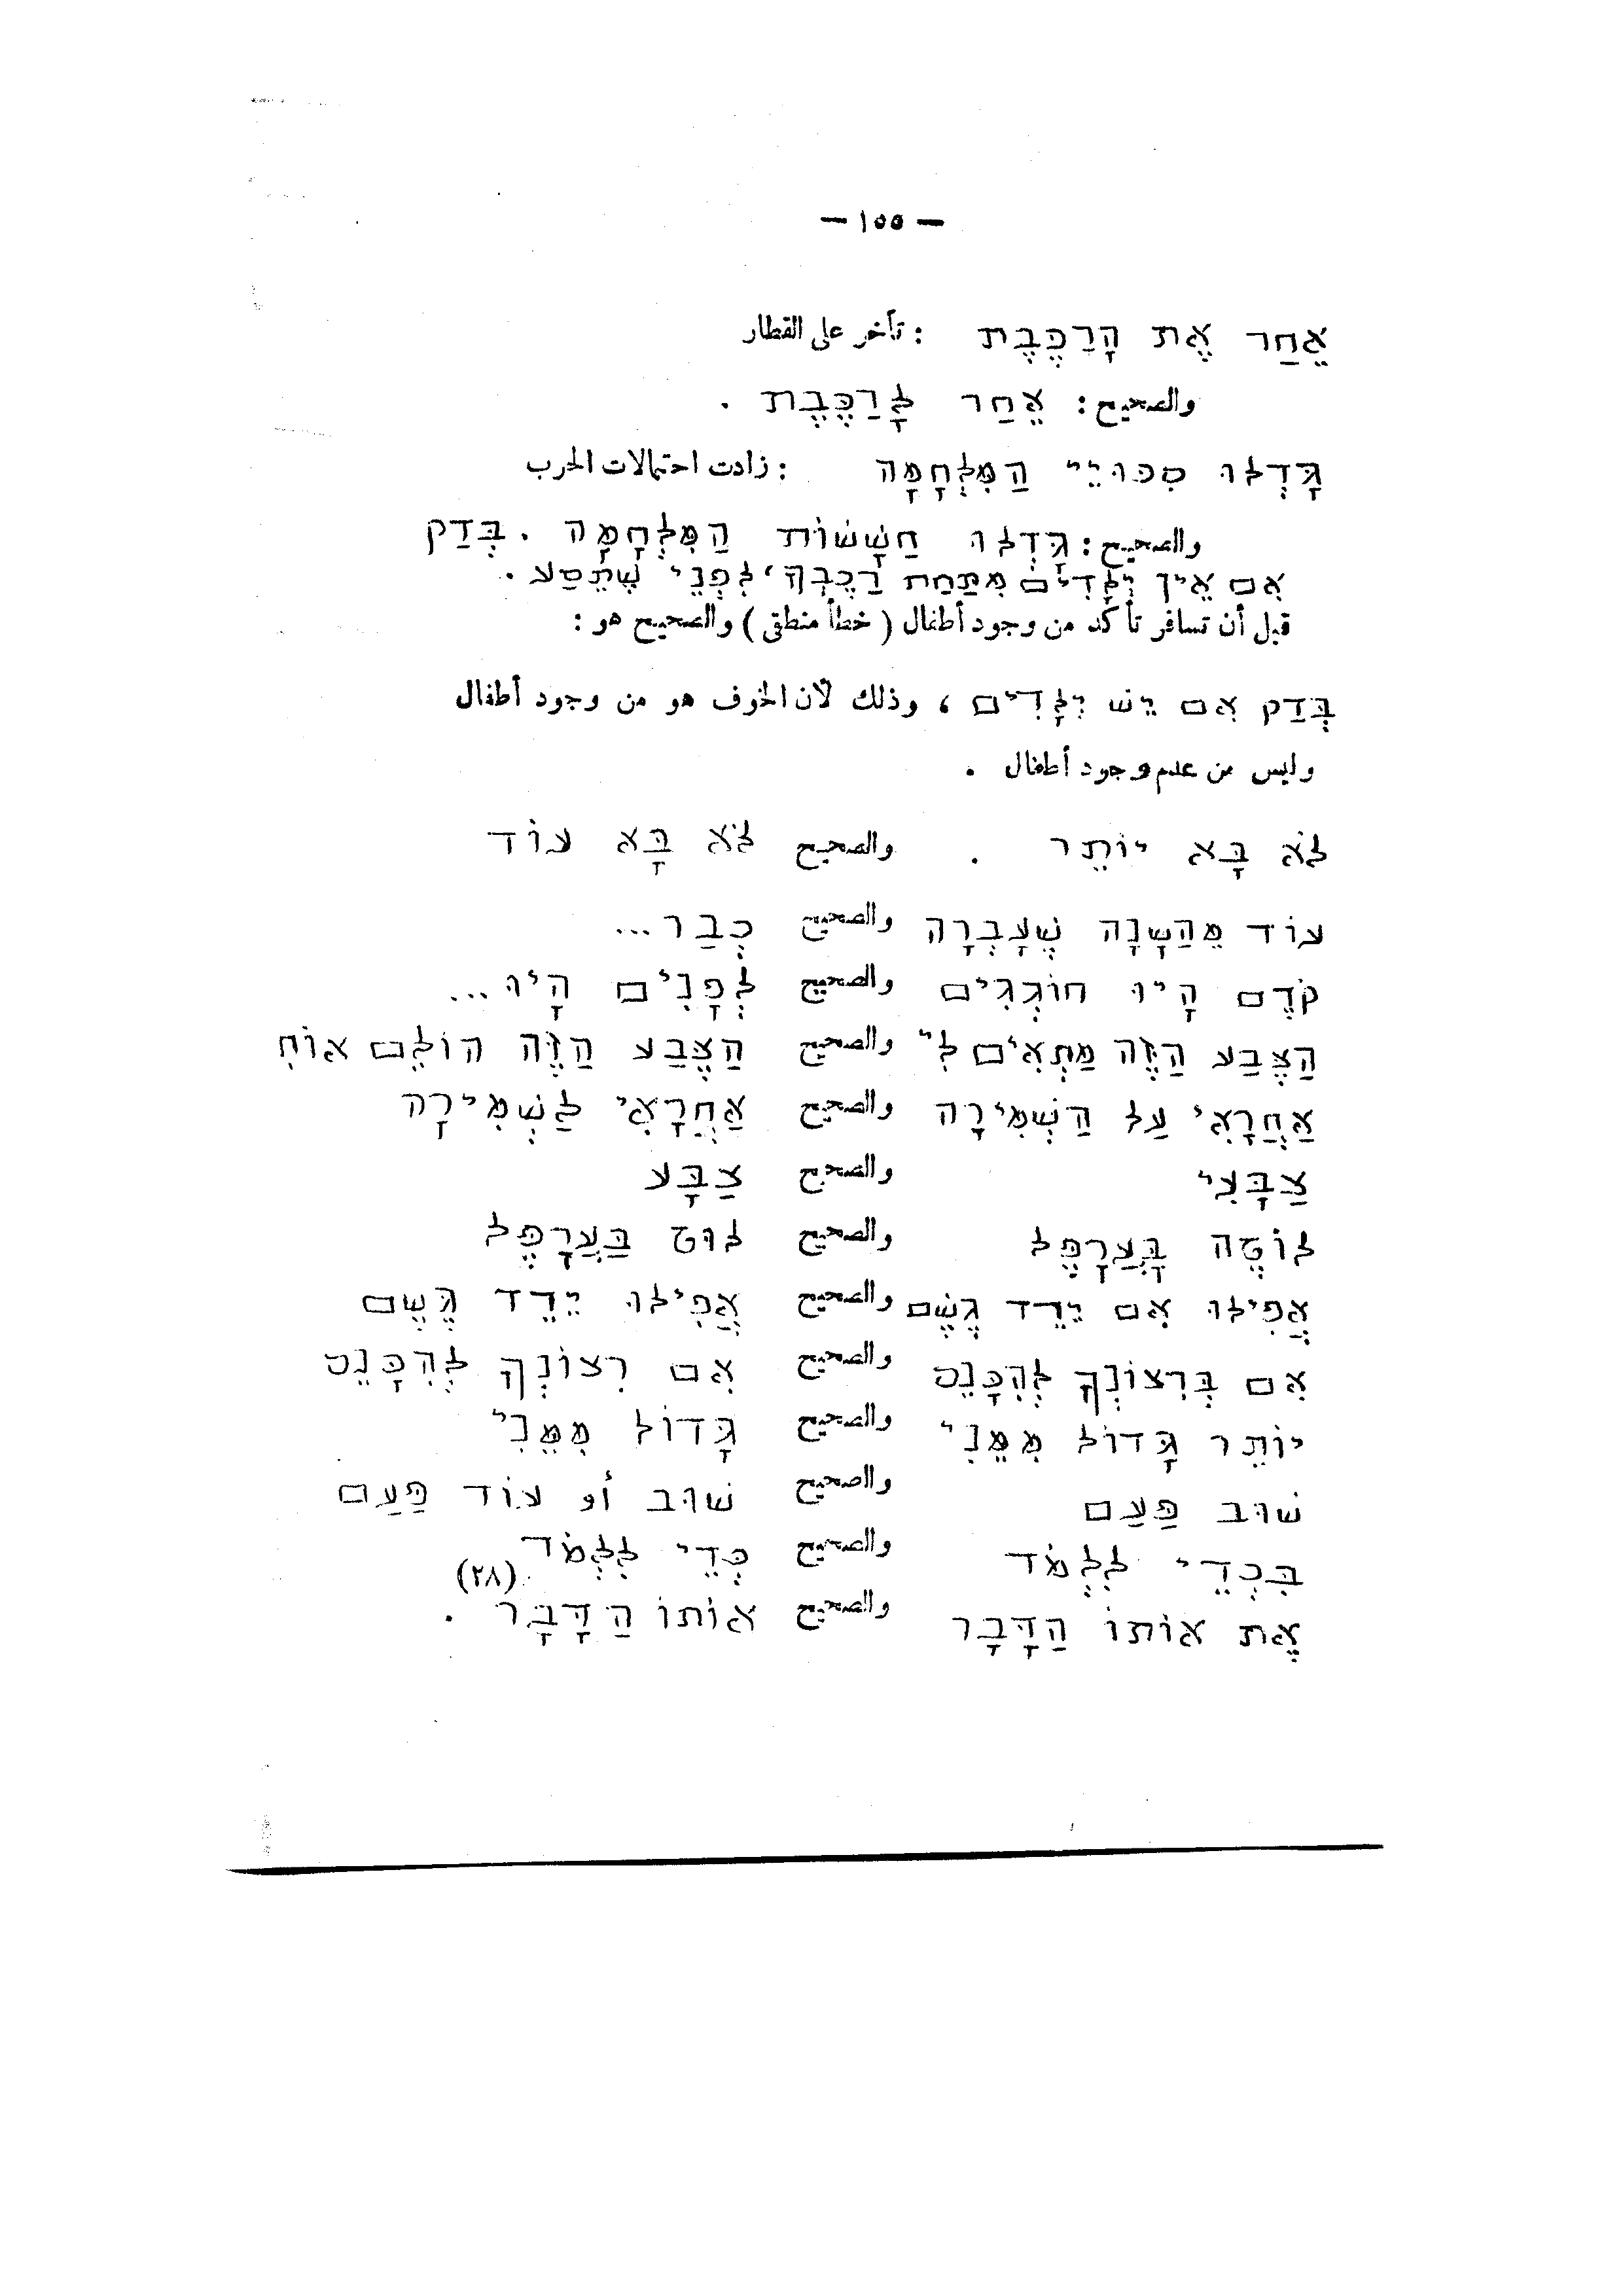 — ١٥٥ —
אֵחַר אֶת הָרַכֶּבֶת : تأخر على القطار
والصحيح : אֵחַר לָרַכֶּבֶת .
גָּדְלוּ סִכּוּיֵי הַמִּלְחָמָה : زادت احتمالات الحرب
والصحيح : גָּדְלוּ חַשָׁשׁוֹת הַמִּלְחָמָה . בְּדַק
אִם אֵין יְלָדִים מִתַּחַת רַכֶבְךָ, לִפְנֵי שֶׁתִּסַּע .
قبل أن تسافر تأكد من وجود أطفال ( خطأ منطقى ) والصحيح هو :
בְּדַק אִם יֵשׁ יְלָדִים ، وذلك لأن الخوف هو من وجود أطفال
وليس من عدم وجود أطفال .
לֹא בָּא יוֹתֵר . والصحيح לֹא בָּא עוֹד
עוֹד מֵהַשָׁנָה שֶׁעָבְרָה والصحيح כְּבַר ...
קֹדֶם הָיוּ חוֹגְגִים والصحيح לְפָנִים הָיוּ ...
הַצֶּבַע הַזֶּה מַתְאִים לִי والصحيح הַצֶּבַע הַזֶּה הוֹלֵם אוֹתִ
אַחֲרָאִי עַל הַשְּׁמִירָה والصحيح אַחֲרָאִי לַשְּׁמִירָה
צַבָּעִי والصحيح צַבָּע
לוֹטֶה בָּעֲרָפֶל والصحيح לוּט בַּעֲרָפֶל
אֲפִילוּ אִם יֵרֵד גֶשֶׁם والصحيح אֲפִילוּ יֵרֵד גֶּשֶׁם
אִם בְּרִצוֹנְךָ לְהִכָּנֵס والصحيح אִם רִצוֹנְךָ לְהִכָּנֵס
יוֹתֵר גָּדוֹל מִמֶּנִי والصحيح גָּדוֹל מִמֶּנִי
שׁוּב פַּעַם والصحيح שׁוּב أو עוֹד פַּעַם
בִּכְדֵי לִלְמֹד والصحيح כְּדֵי לִלְמֹד
אֶת אוֹתוֹ הַדָּבָר والصحيح אוֹתוֹ הַדָּבָר . (٢٨)